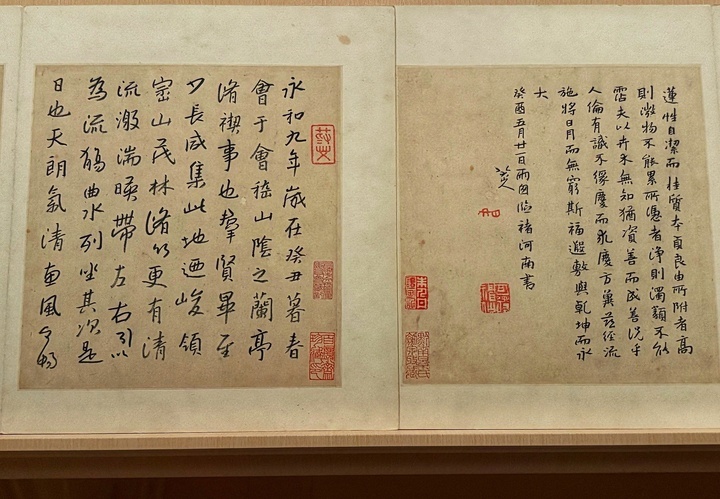 蓮性自潔而桂質本貞良由所附者高
則微物不能累所憑者淨則濁類不能
霑夫以卉木無知猶資善而成善況乎
人倫有識不緣慶而求慶方冀茲經流
施將日月而無窮斯福遐敷與乾坤而永
大
癸酉五月廿一日雨因臨褚河南書
永和九年歲在癸丑暮春
會于會稽山陰之蘭亭
脩禊事也羣賢畢至
少長咸集此地迺峻領
崇山茂林脩竹更有清
流激湍暎帶左右引以
為流觴曲水列坐其次是
日也天朗氣清惠風和暢